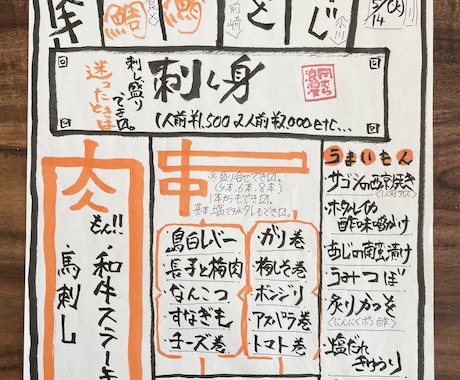 5/14(火)
刺し身
刺し盛り
でき〼。
迷ったときは
1人前¥1,500 2人前¥2,000 etc...
岡むら
浪漫
串
※盛り合せでき〼。
(4本,6本,8本)
1本からもでき〼。
鳥白レバー
長芋と梅肉
なんこつ
すなぎも
チーズ巻
ガリ巻
梅しそ巻
ボンジリ
アスパラ巻
トマト巻
うまいもん
サゴシの西京焼き
ホタルイカ
酢味噌かけ
あじの南蛮漬け
うみつぼ
炙りかつを
<にんにくポン酢>
塩だれ
きゅうり
もん!!
和牛ステーキ
馬刺し